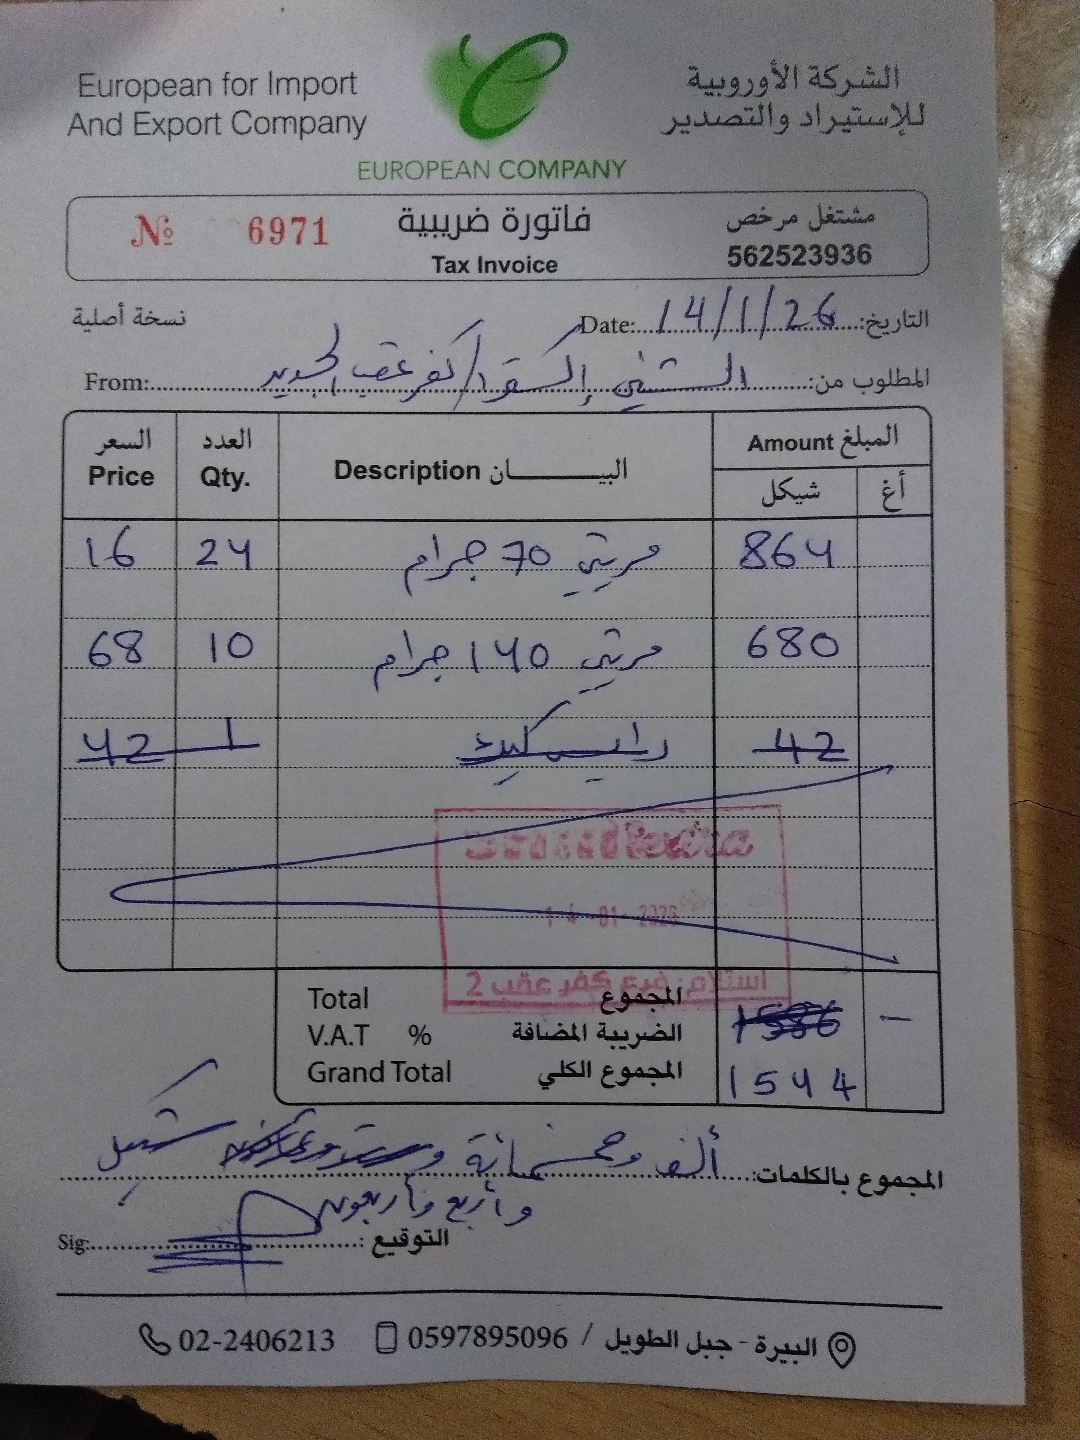 European for Import
And Export Company
الشركة الأوروبية
للإستيراد والتصدير
EUROPEAN COMPANY
№ 6971
فاتورة ضريبية
Tax Invoice
مشتغل مرخص
562523936
نسخة أصلية
التاريخ: 14/1/26 Date:
المطلوب من: الشني إكسترا / كفر عقب الجديد From:
السعر Price
العدد Qty.
البيـــــــــان Description
المبلغ Amount
شيكل
أغ
16 24 مريتي 70 جرام 864
68 10 مريتي 140 جرام 680
42 1 رايس كيك 42
Bravo
14-01-2026
استلام: فرع كفر عقب 2
Total المجموع 1586 —
V.A.T % الضريبة المضافة
Grand Total المجموع الكلي 1544
المجموع بالكلمات: ألف وخمسمائة شيكل
وأربع وأربعون
Sig: التوقيع:
02-2406213 0597895096 / البيرة - جبل الطويل